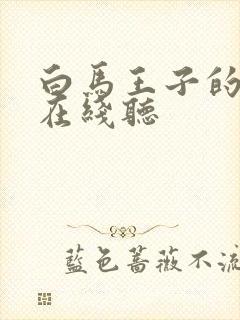 白馬王子的
在綫聽
藍色薔薇不流